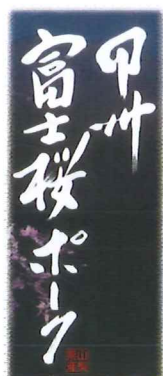 甲州
富士桜ポーク